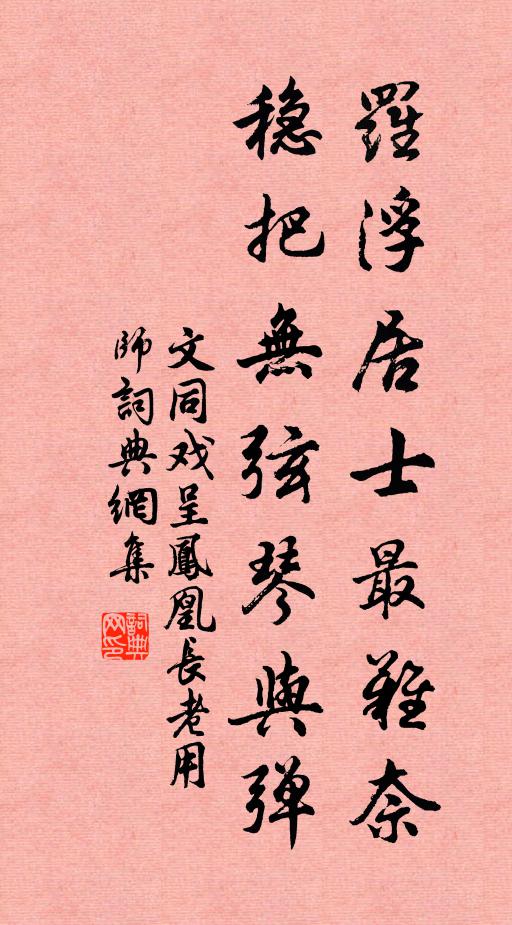 羅浮居士最難奈
穩把無弦琴與彈
文同戏呈鳳凰長老用
師詞典網集
詞典网印